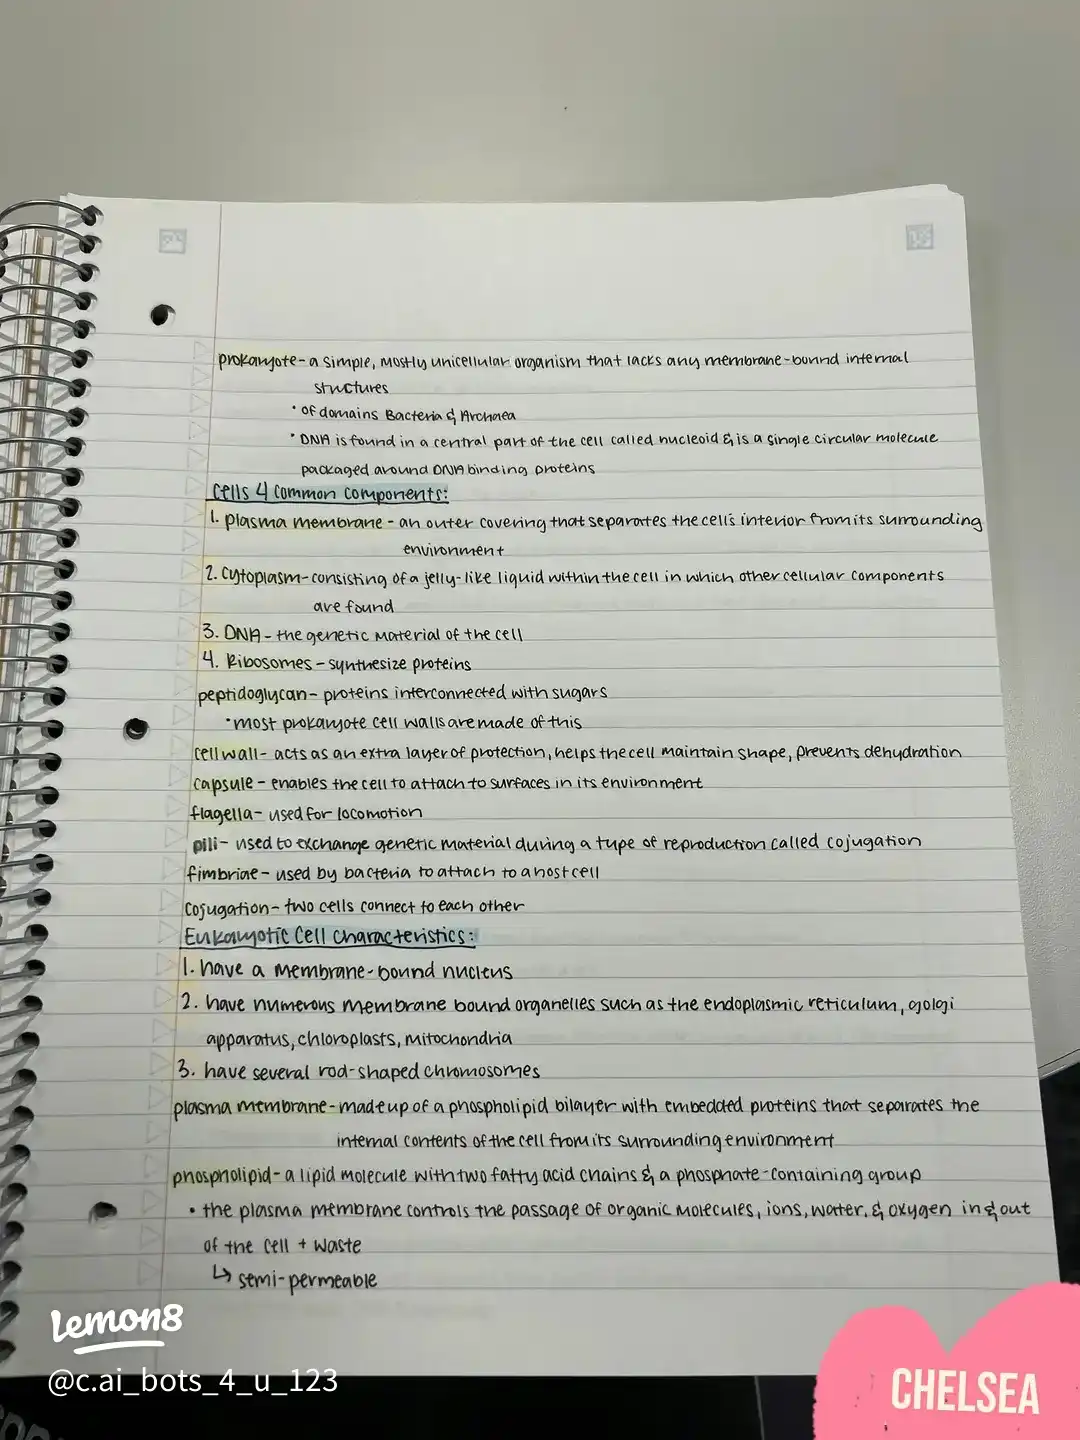 prokaryote - a simple, mostly unicellular organism that lacks any membrane-bound internal
structures
• of domains Bacteria & Archaea
• DNA is found in a central part of the cell called nucleoid & is a single circular molecule
packaged around DNA binding proteins
Cells 4 common components:
1. plasma membrane - an outer covering that separates the cell's interior from its surrounding
environment
2. Cytoplasm - consisting of a jelly-like liquid within the cell in which other cellular components
are found
3. DNA - the genetic material of the cell
4. Ribosomes - synthesize proteins
peptidoglycan - proteins interconnected with sugars
• most prokaryote cell walls are made of this
cell wall - acts as an extra layer of protection, helps the cell maintain shape, prevents dehydration
capsule - enables the cell to attach to surfaces in its environment
flagella - used for locomotion
pili - used to exchange genetic material during a type of reproduction called cojugation
fimbriae - used by bacteria to attach to a host cell
cojugation - two cells connect to each other
Eukaryotic Cell Characteristics:
1. have a membrane-bound nucleus
2. have numerous membrane bound organelles such as the endoplasmic reticulum, golgi
apparatus, chloroplasts, mitochondria
3. have several rod-shaped chromosomes
plasma membrane - made up of a phospholipid bilayer with embedded proteins that separates the
internal contents of the cell from its surrounding environment
phospholipid - a lipid molecule with two fatty acid chains & a phosphate-containing group
• the plasma membrane controls the passage of organic molecules, ions, water, & oxygen in & out
of the cell + waste
↳ semi-permeable
Lemon8
@c.ai_bots_4_u_123
CHELSEA